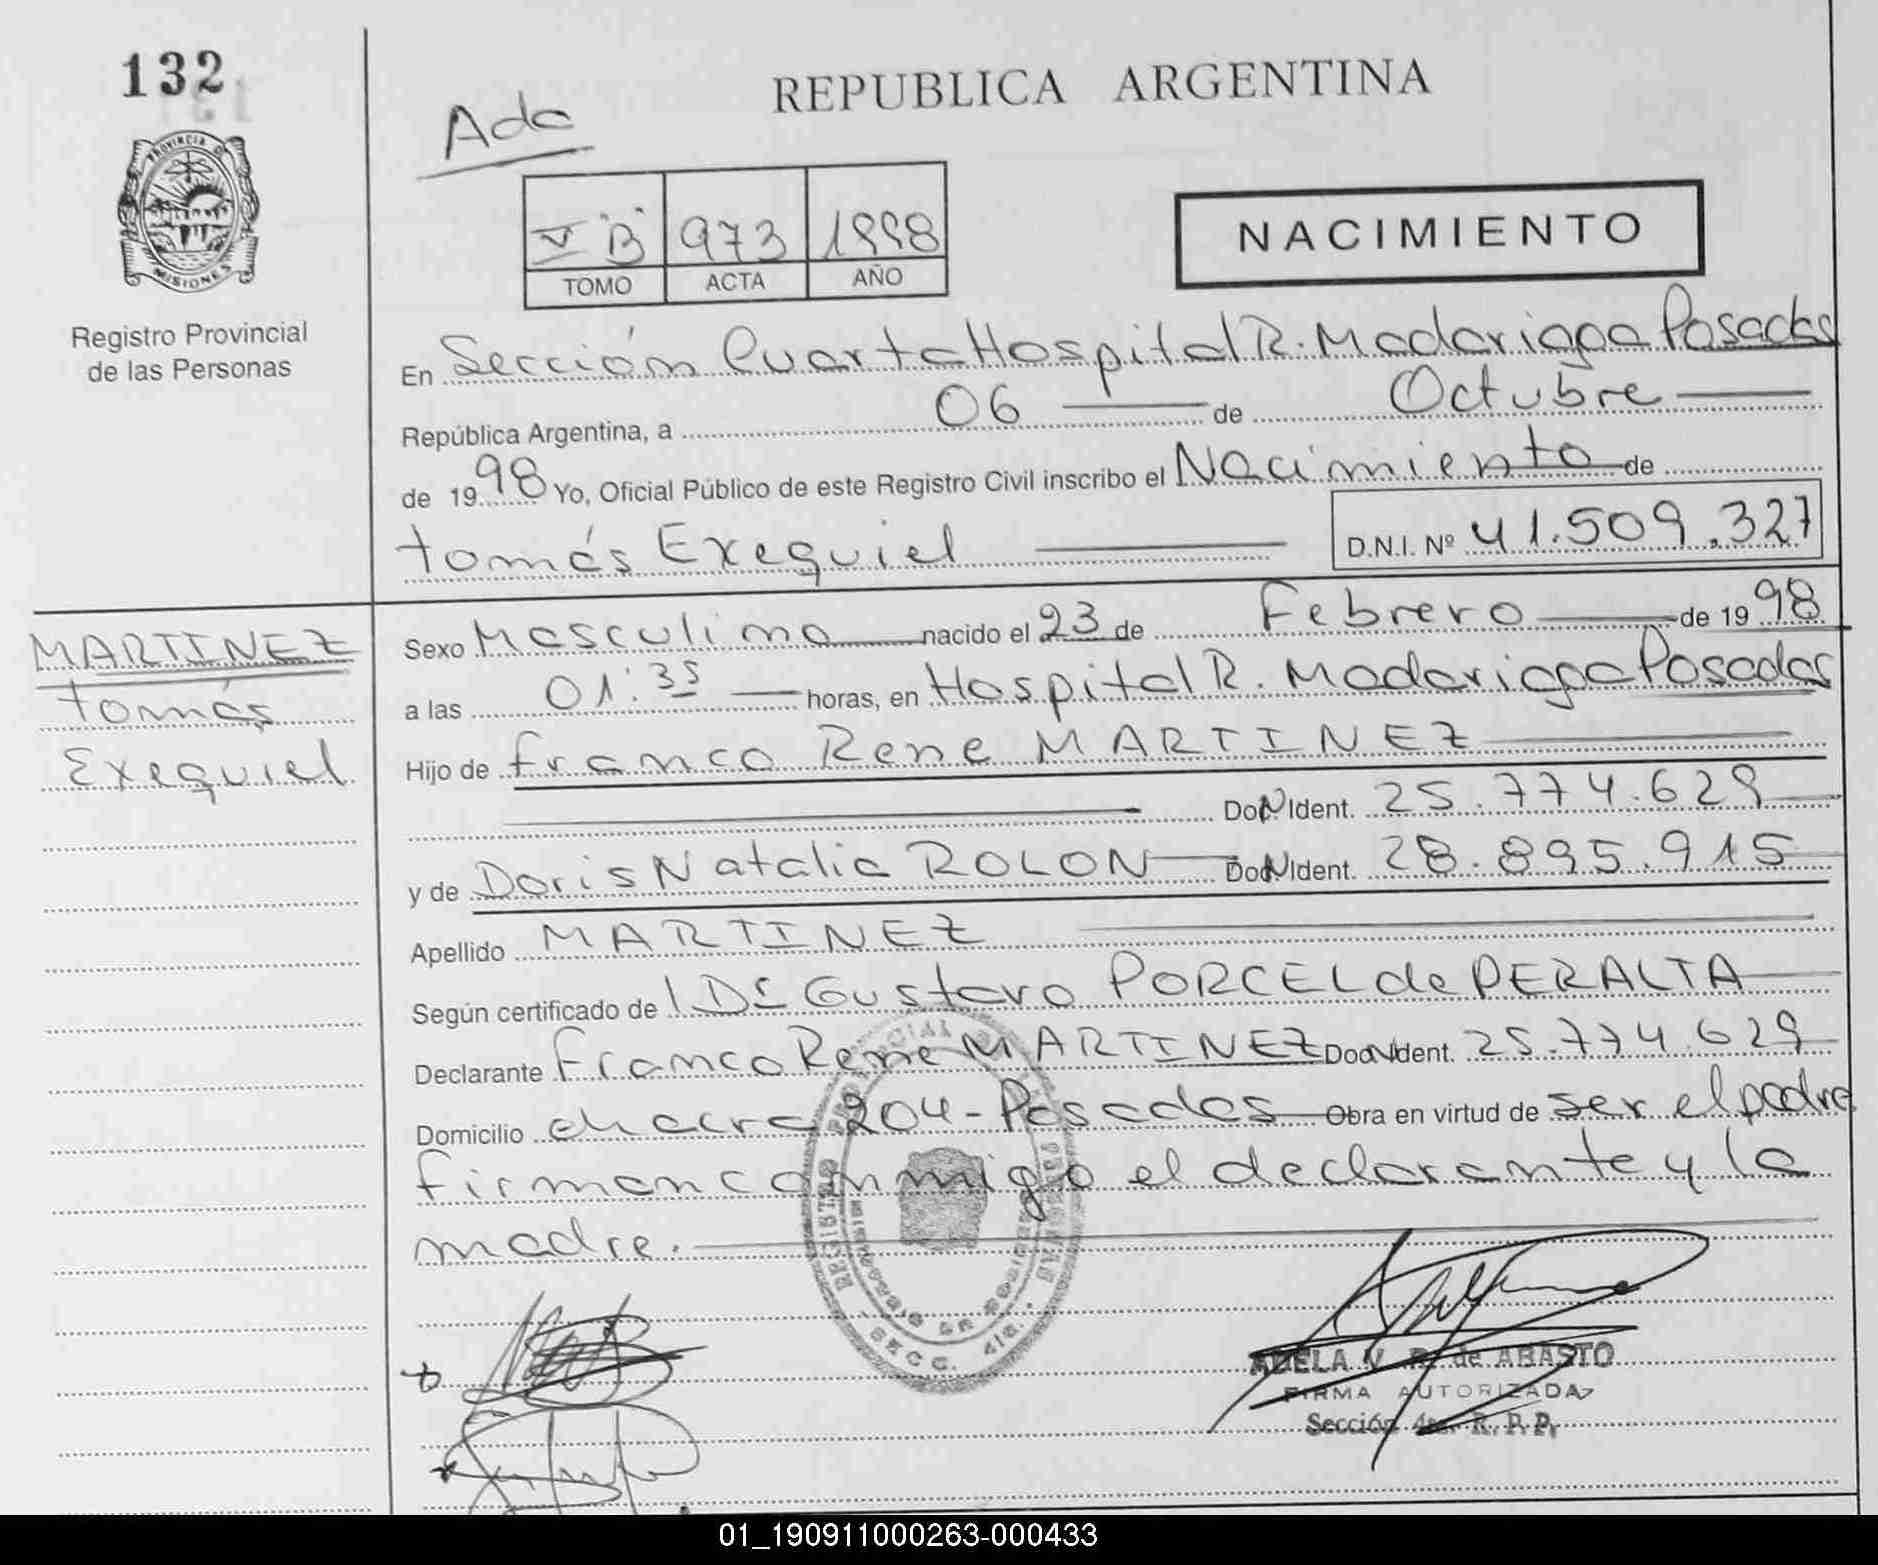 132
REPUBLICA ARGENTINA
Ada
PROVINCIA D
MISIONES
Registro Provincial
de las Personas
V "B" 973 1998
TOMO ACTA AÑO
NACIMIENTO
En Sección Cuarta Hospital R. Madariaga Posadas
República Argentina, a 06 de Octubre
de 1998 Yo, Oficial Público de este Registro Civil inscribo el Nacimiento de
tomás Exequiel D.N.I. Nº 41.509.327
MARTINEZ
tomás
Exequiel
Sexo Masculino nacido el 23 de Febrero de 1998
a las 01:35 horas, en Hospital R. Madariaga Posadas
Hijo de franco Rene MARTINEZ
Ident. 25.774.629
y de Doris Natalia ROLON Ident. 28.895.915
Apellido MARTINEZ
Según certificado de Gustavo PORCEL de PERALTA
Declarante Franco Rene MARTINEZ Ident. 25.774.629
Domicilio chacra 204 - Posadas Obra en virtud de ser el padre
firman conmigo el declarante y la
madre.
SECC. 4ta.
ADELA V. R. de ABASTO
FIRMA AUTORIZADA
Sección 4ta. R. P. P.
01_190911000263-000433